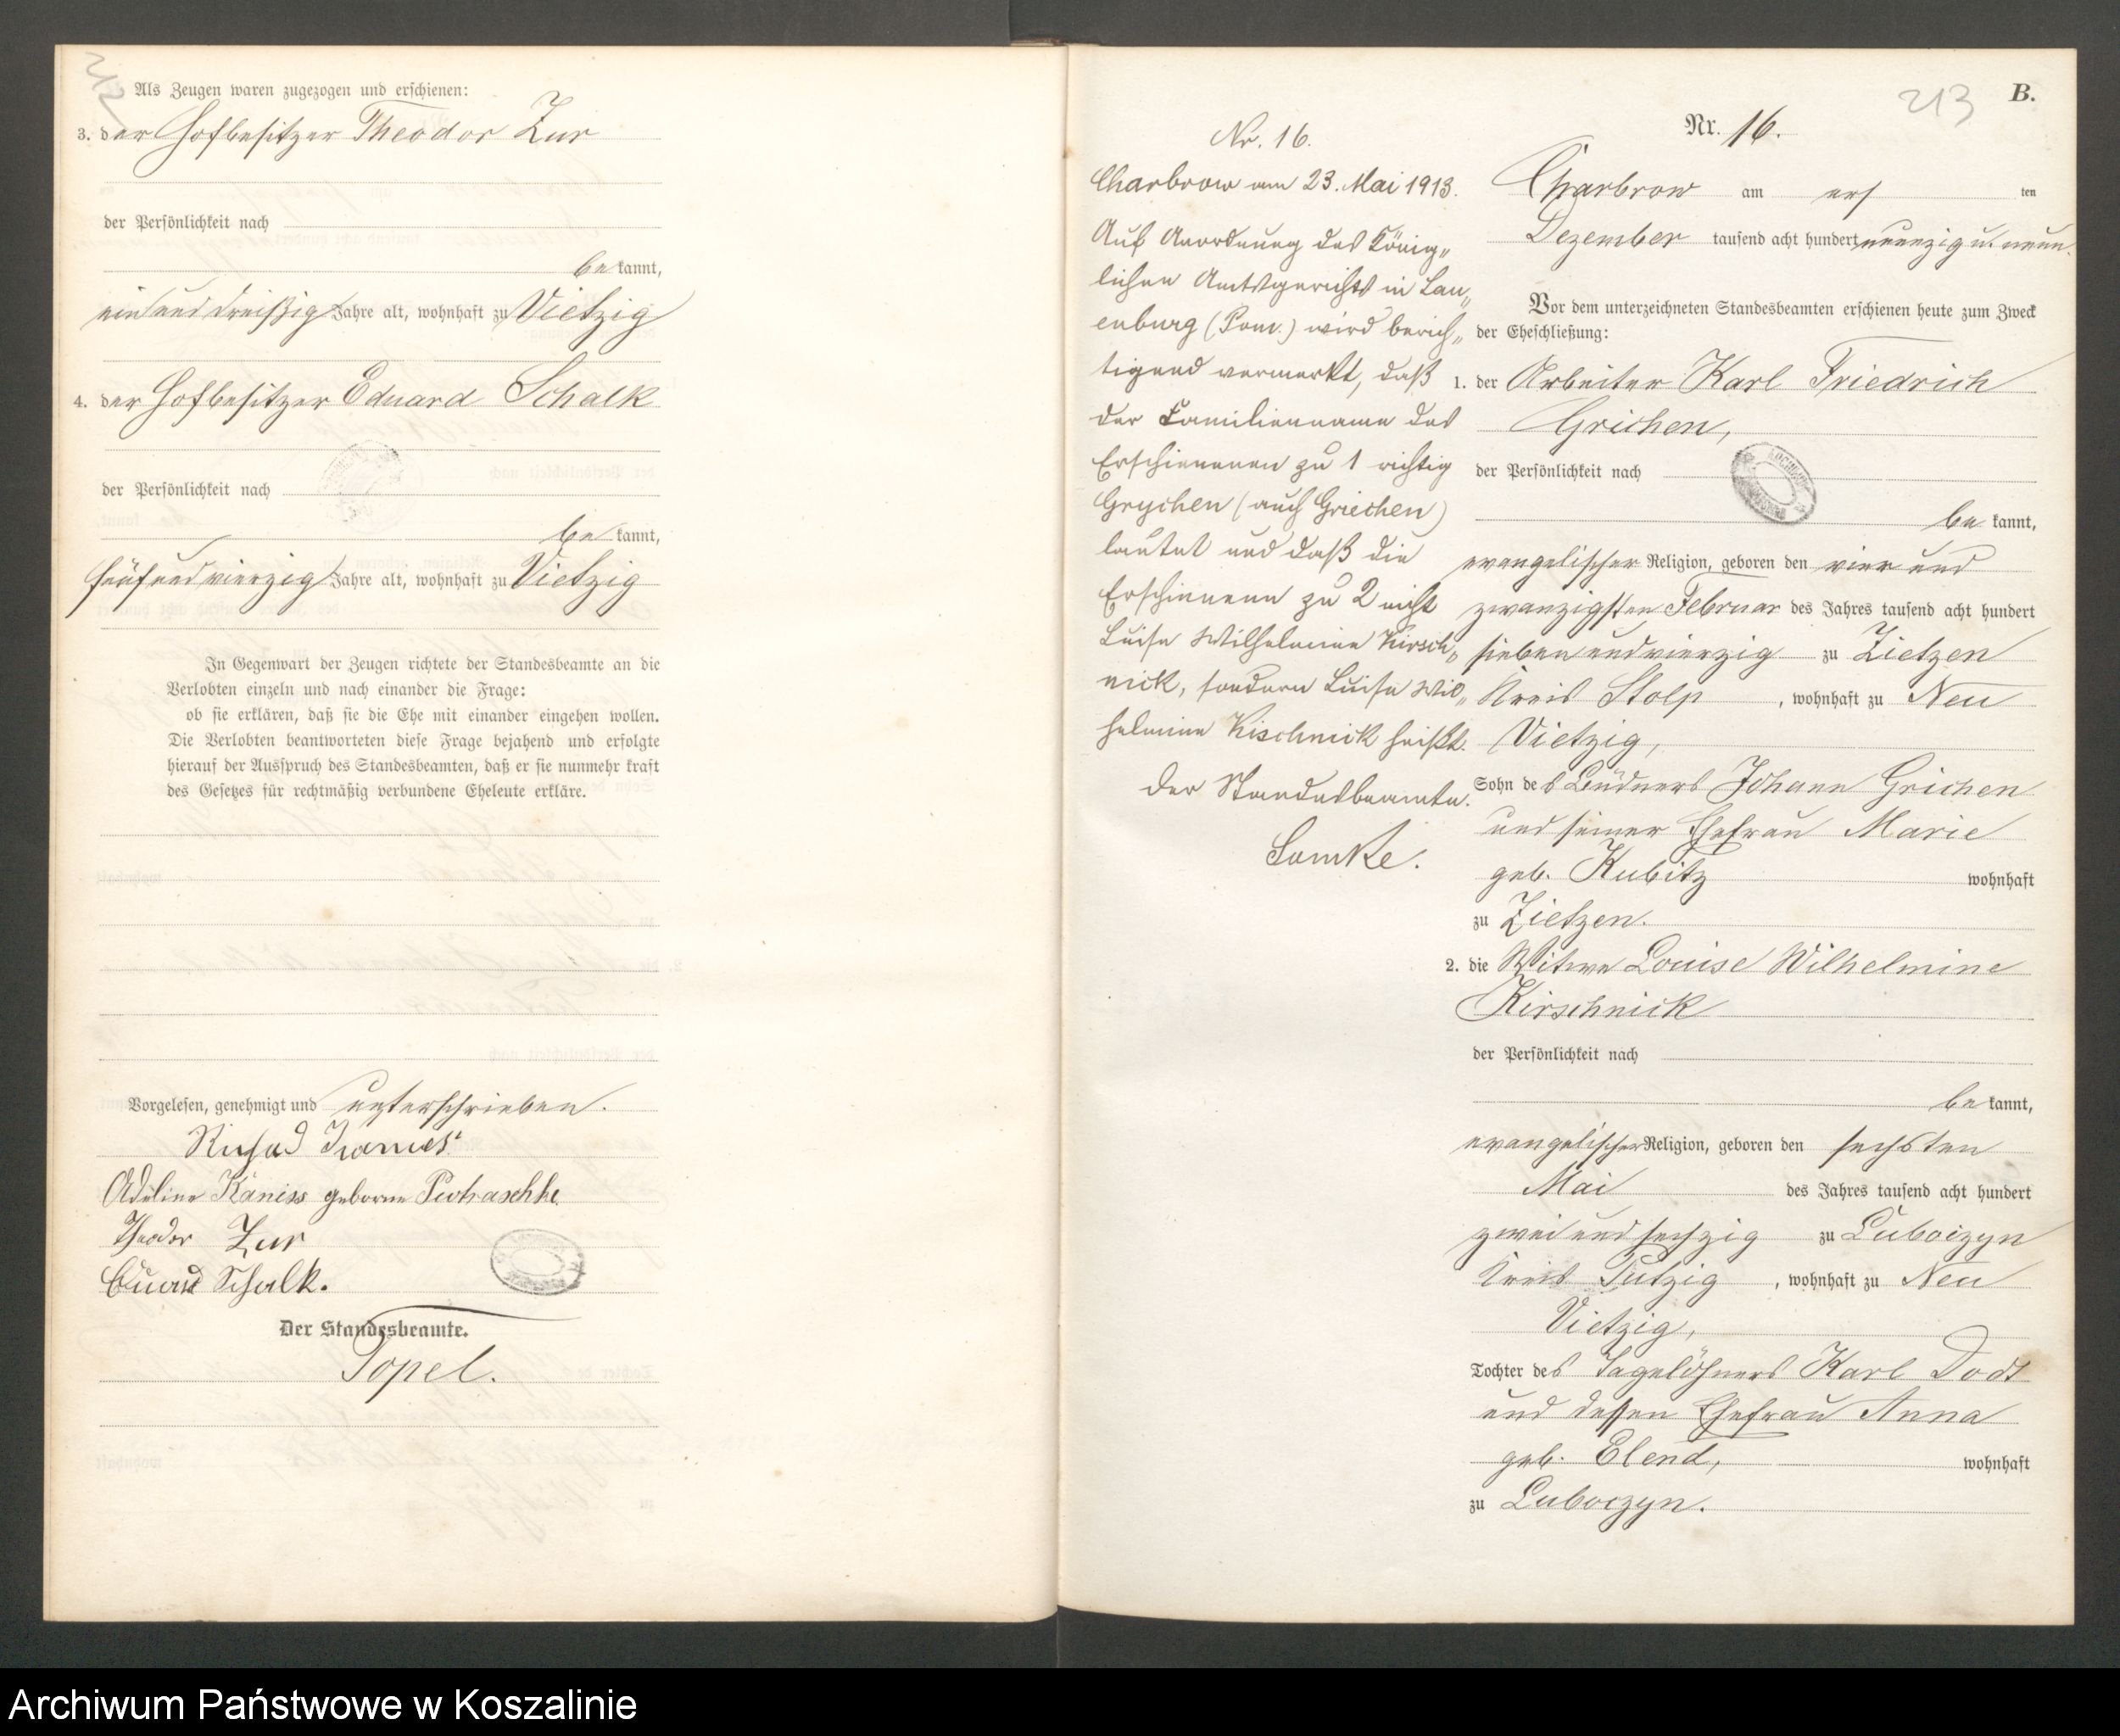 Als Zeugen waren zugezogen und erschienen:
3. der Hofbesitzer Theodor Zur
der Persönlichkeit nach
be kannt,
ein und dreißig Jahre alt, wohnhaft zu Vietzig
4. der Hofbesitzer Eduard Schalk
der Persönlichkeit nach
be kannt,
fünf und vierzig Jahre alt, wohnhaft zu Vietzig
In Gegenwart der Zeugen richtete der Standesbeamte an die
Verlobten einzeln und nach einander die Frage:
ob sie erklären, daß sie die Ehe mit einander eingehen wollen.
Die Verlobten beantworteten diese Frage bejahend und erfolgte
hierauf der Ausspruch des Standesbeamten, daß er sie nunmehr kraft
des Gesetzes für rechtmäßig verbundene Eheleute erkläre.
Vorgelesen, genehmigt und unterschrieben.
Adeline Käniss geborne
Theodor Zur
Eduard Schalk.
Der Standesbeamte.
Topel.
213
B.
Nr. 16.
Charbrow am 23. Mai 1913.
Auf Anordnung des König„
lichen Amtsgerichts in Lau„
enburg (Pom.) wird berich„
tigend vermerkt, daß
der Familienname des
Erschienenen zu 1 richtig
Grychen (auch Griechen)
lautet und daß die
Erschienene zu 2 nicht
Luise Wilhelmine Kirsch„
nick, sondern Luise Wil„
helmine Kischnick heißt.
Der Standesbeamte.
Lemke.
Nr. 16.
Charbrow am ersten
Dezember tausend acht hundert neunzig u. neun.
Vor dem unterzeichneten Standesbeamten erschienen heute zum Zweck
der Eheschließung:
1. der Arbeiter Karl Friedrich
Grichen,
der Persönlichkeit nach
be kannt,
evangelischer Religion, geboren den vier und
zwanzigsten Februar des Jahres tausend acht hundert
sieben und vierzig zu Zietzen
Kreis Stolp, wohnhaft zu Neu
Vietzig,
Sohn des Büdners Johann Grichen
und seiner Ehefrau Marie
geb. Kubitz wohnhaft
zu Zietzen.
2. die Witwe Louise Wilhelmine
Kirschnick
der Persönlichkeit nach
be kannt,
evangelischer Religion, geboren den sechsten
Mai des Jahres tausend acht hundert
zwei und sechzig zu Luboczyn
Kreis Putzig, wohnhaft zu Neu
Vietzig,
Tochter des Tagelöhners Karl Dodt
und dessen Ehefrau Anna
geb. Elend, wohnhaft
zu Luboczyn.
Archiwum Państwowe w Koszalinie